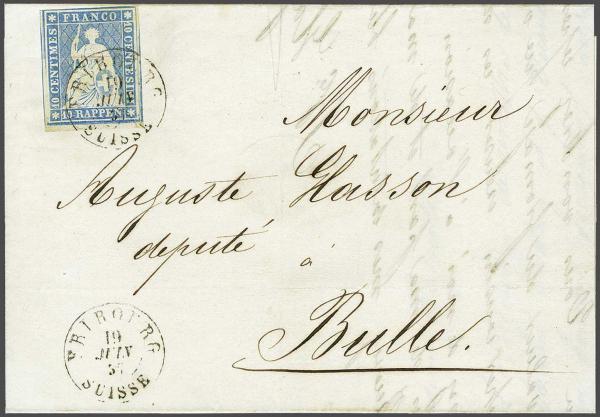 FRANCO
10 CENTIMES
10 CENTESIMI
10 RAPPEN
FRIBOURG
19
JUIN
SUISSE
Monsieur
Auguste Glasson
deputé
à
Bulle.
FRIBOURG
19
JUIN
SUISSE